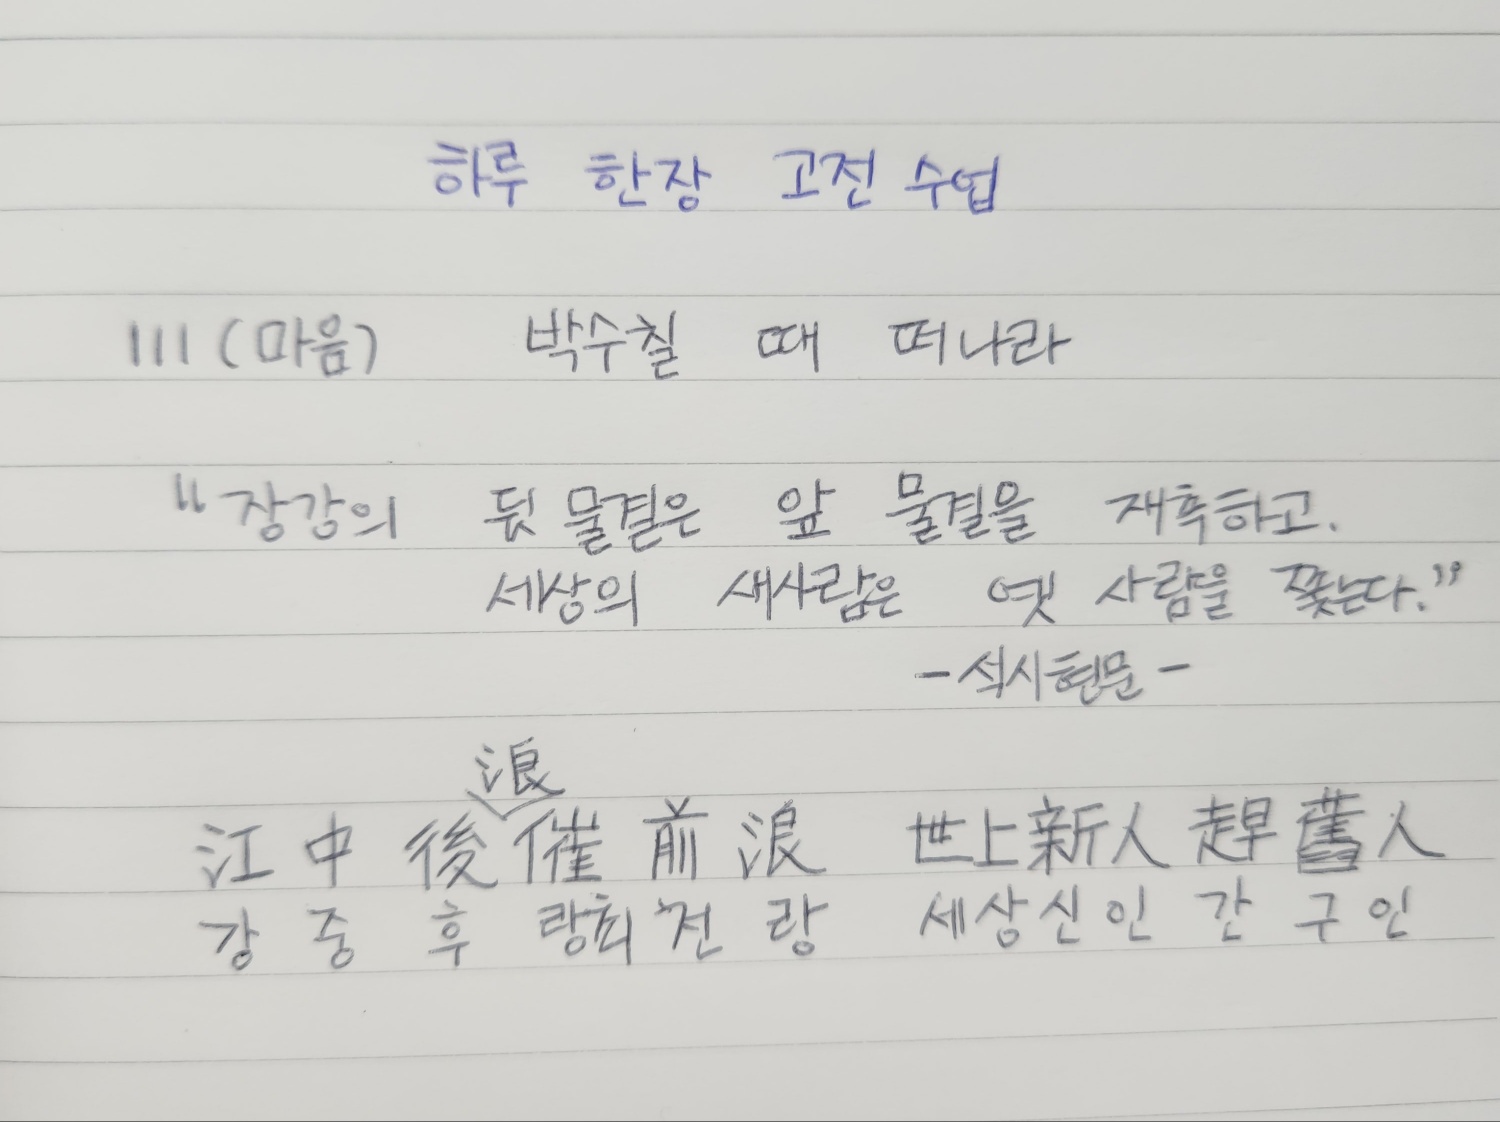 하루 한장 고전 수업
111 (마음) 박수칠 때 떠나라
"장강의 뒷 물결은 앞 물결을 재촉하고.
세상의 새사람은 옛 사람을 쫓는다."
- 석시현문 -
江中後浪催前浪 世上新人趕舊人
강중후랑최전랑 세상신인간구인